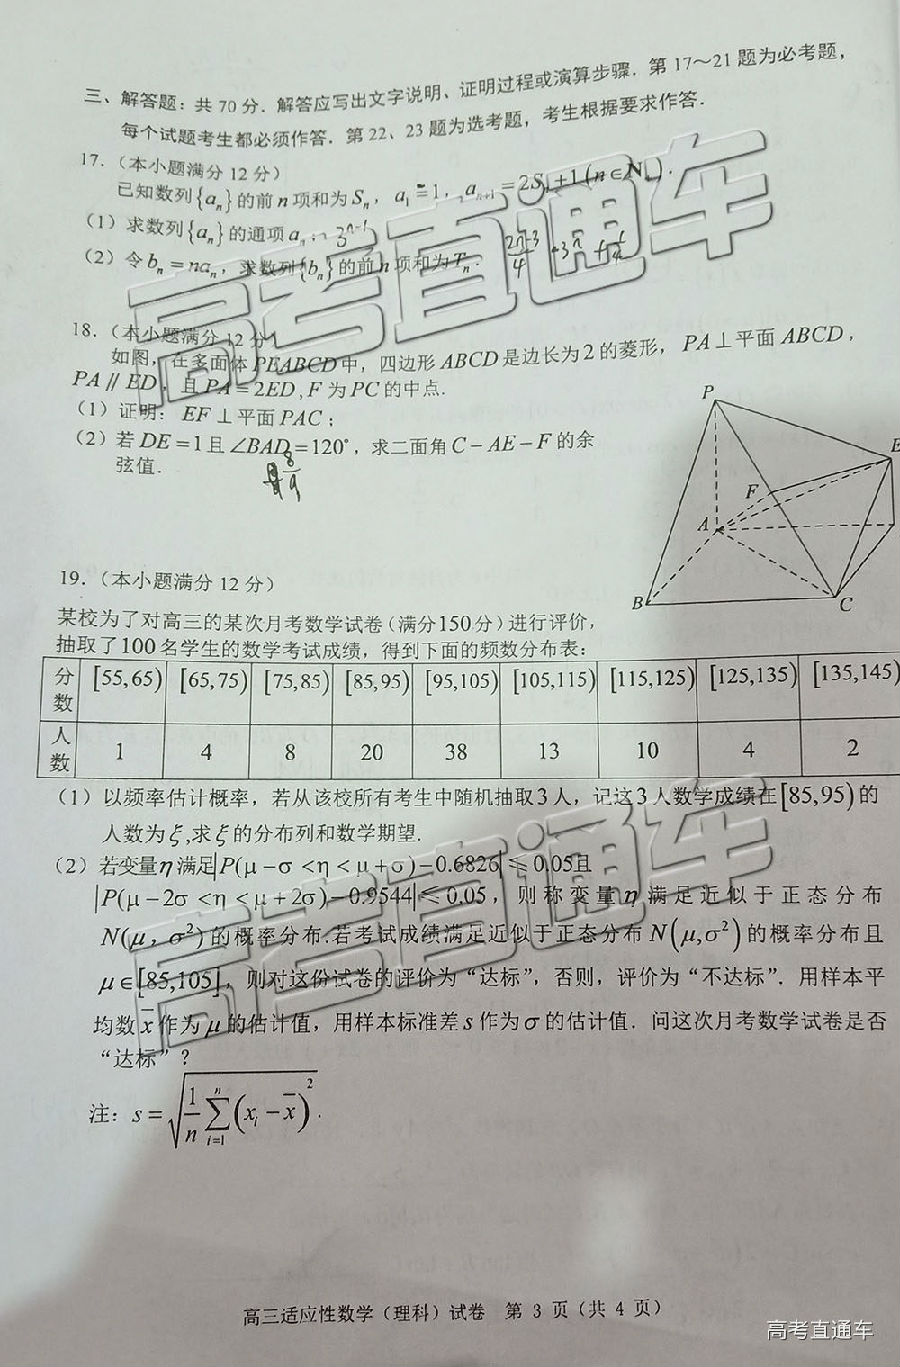 三、解答题：共 70 分．解答应写出文字说明、证明过程或演算步骤．第 17～21 题为必考题，
每个试题考生都必须作答．第 22、23 题为选考题，考生根据要求作答．
17．（本小题满分 12 分）
已知数列{aₙ}的前 n 项和为 Sₙ，a₁=1，aₙ₊₁=2Sₙ+1(n∈N₊)．
（1）求数列{aₙ}的通项 aₙ； 3ⁿ⁻¹
（2）令 bₙ=naₙ，求数列{bₙ}的前 n 项和为 Tₙ． (2n-3)/4 ·3ⁿ +
18．（本小题满分 12 分）
如图，在多面体 PEABCD 中，四边形 ABCD 是边长为 2 的菱形，PA⊥平面 ABCD，
PA∥ED，且 PA=2ED，F 为 PC 的中点．
（1）证明：EF⊥平面 PAC；
（2）若 DE=1 且∠BAD=120°，求二面角 C－AE－F 的余
弦值． 8/9
P
E
F
A
B
C
19．（本小题满分 12 分）
某校为了对高三的某次月考数学试卷（满分 150 分）进行评价，
抽取了 100 名学生的数学考试成绩，得到下面的频数分布表：
分数 [55,65) [65,75) [75,85) [85,95) [95,105) [105,115) [115,125) [125,135) [135,145)
人数 1 4 8 20 38 13 10 4 2
（1）以频率估计概率，若从该校所有考生中随机抽取 3 人，记这 3 人数学成绩在[85,95)的
人数为 ξ,求 ξ 的分布列和数学期望.
（2）若变量 η 满足|P(μ－σ＜η＜μ＋σ)－0.6826|≤0.05且
|P(μ－2σ＜η＜μ＋2σ)－0.9544|≤0.05，则称变量 η 满足近似于正态分布
N(μ，σ²)的概率分布.若考试成绩满足近似于正态分布 N(μ,σ²)的概率分布且
μ∈[85,105]，则对这份试卷的评价为“达标”，否则，评价为“不达标”．用样本平
均数 x̄ 作为 μ 的估计值，用样本标准差 s 作为 σ 的估计值．问这次月考数学试卷是否
“达标”？
注：s=√(1/n ∑ᵢ₌₁ⁿ(xᵢ－x̄)²)．
高三适应性数学（理科）试卷 第 3 页（共 4 页）
高考直通车
高考直通车
高考直通车